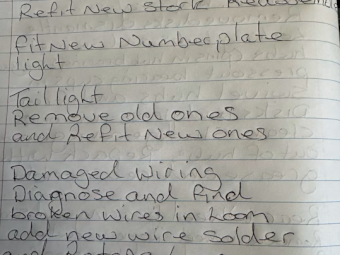 Refit New Stock Reassemble
fit New Number plate
light
Tail light
Remove old ones
and Refit New ones
Damaged Wiring
Diagnose and find
broken wires in Loom
add new wire Solder
and